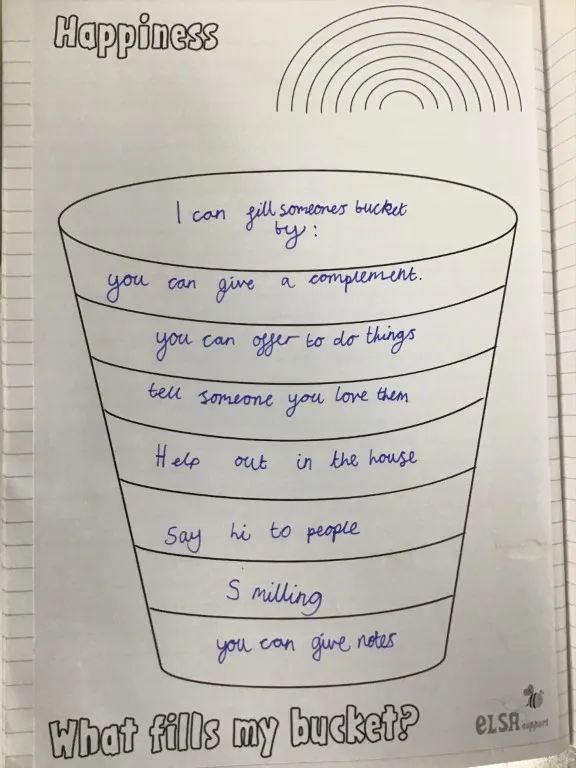 Happiness
I can fill someones bucket
by:
you can give a complement.
you can offer to do things
tell someone you love them
Help out in the house
Say hi to people
Smilling
you can give notes
What fills my bucket?
eLSA support